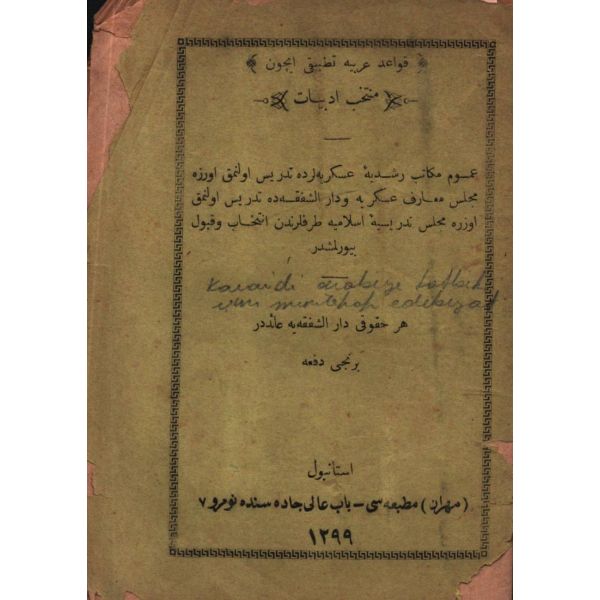 قواعد عربيه تطبيقى ايچون
منتخب ادبيات
عموم مكاتب رشديۀ عسكريه‌لرده تدريس اولنمق اوزره
مجلس معارف عسكريه و دار الشفقه‌ده تدريس اولنمق
اوزره مجلس تدريسيۀ اسلاميه طرفلرندن انتخاب وقبول
بيورلمشدر
Kavaidi arabiye tatbiki
için müntehap edebiyat
هر حقوقى دار الشفقه‌يه عائددر
برنجى دفعه
استانبول
(مهران) مطبعه‌سى – باب عالى جاده‌سنده نومرو ٧
١٢٩٩